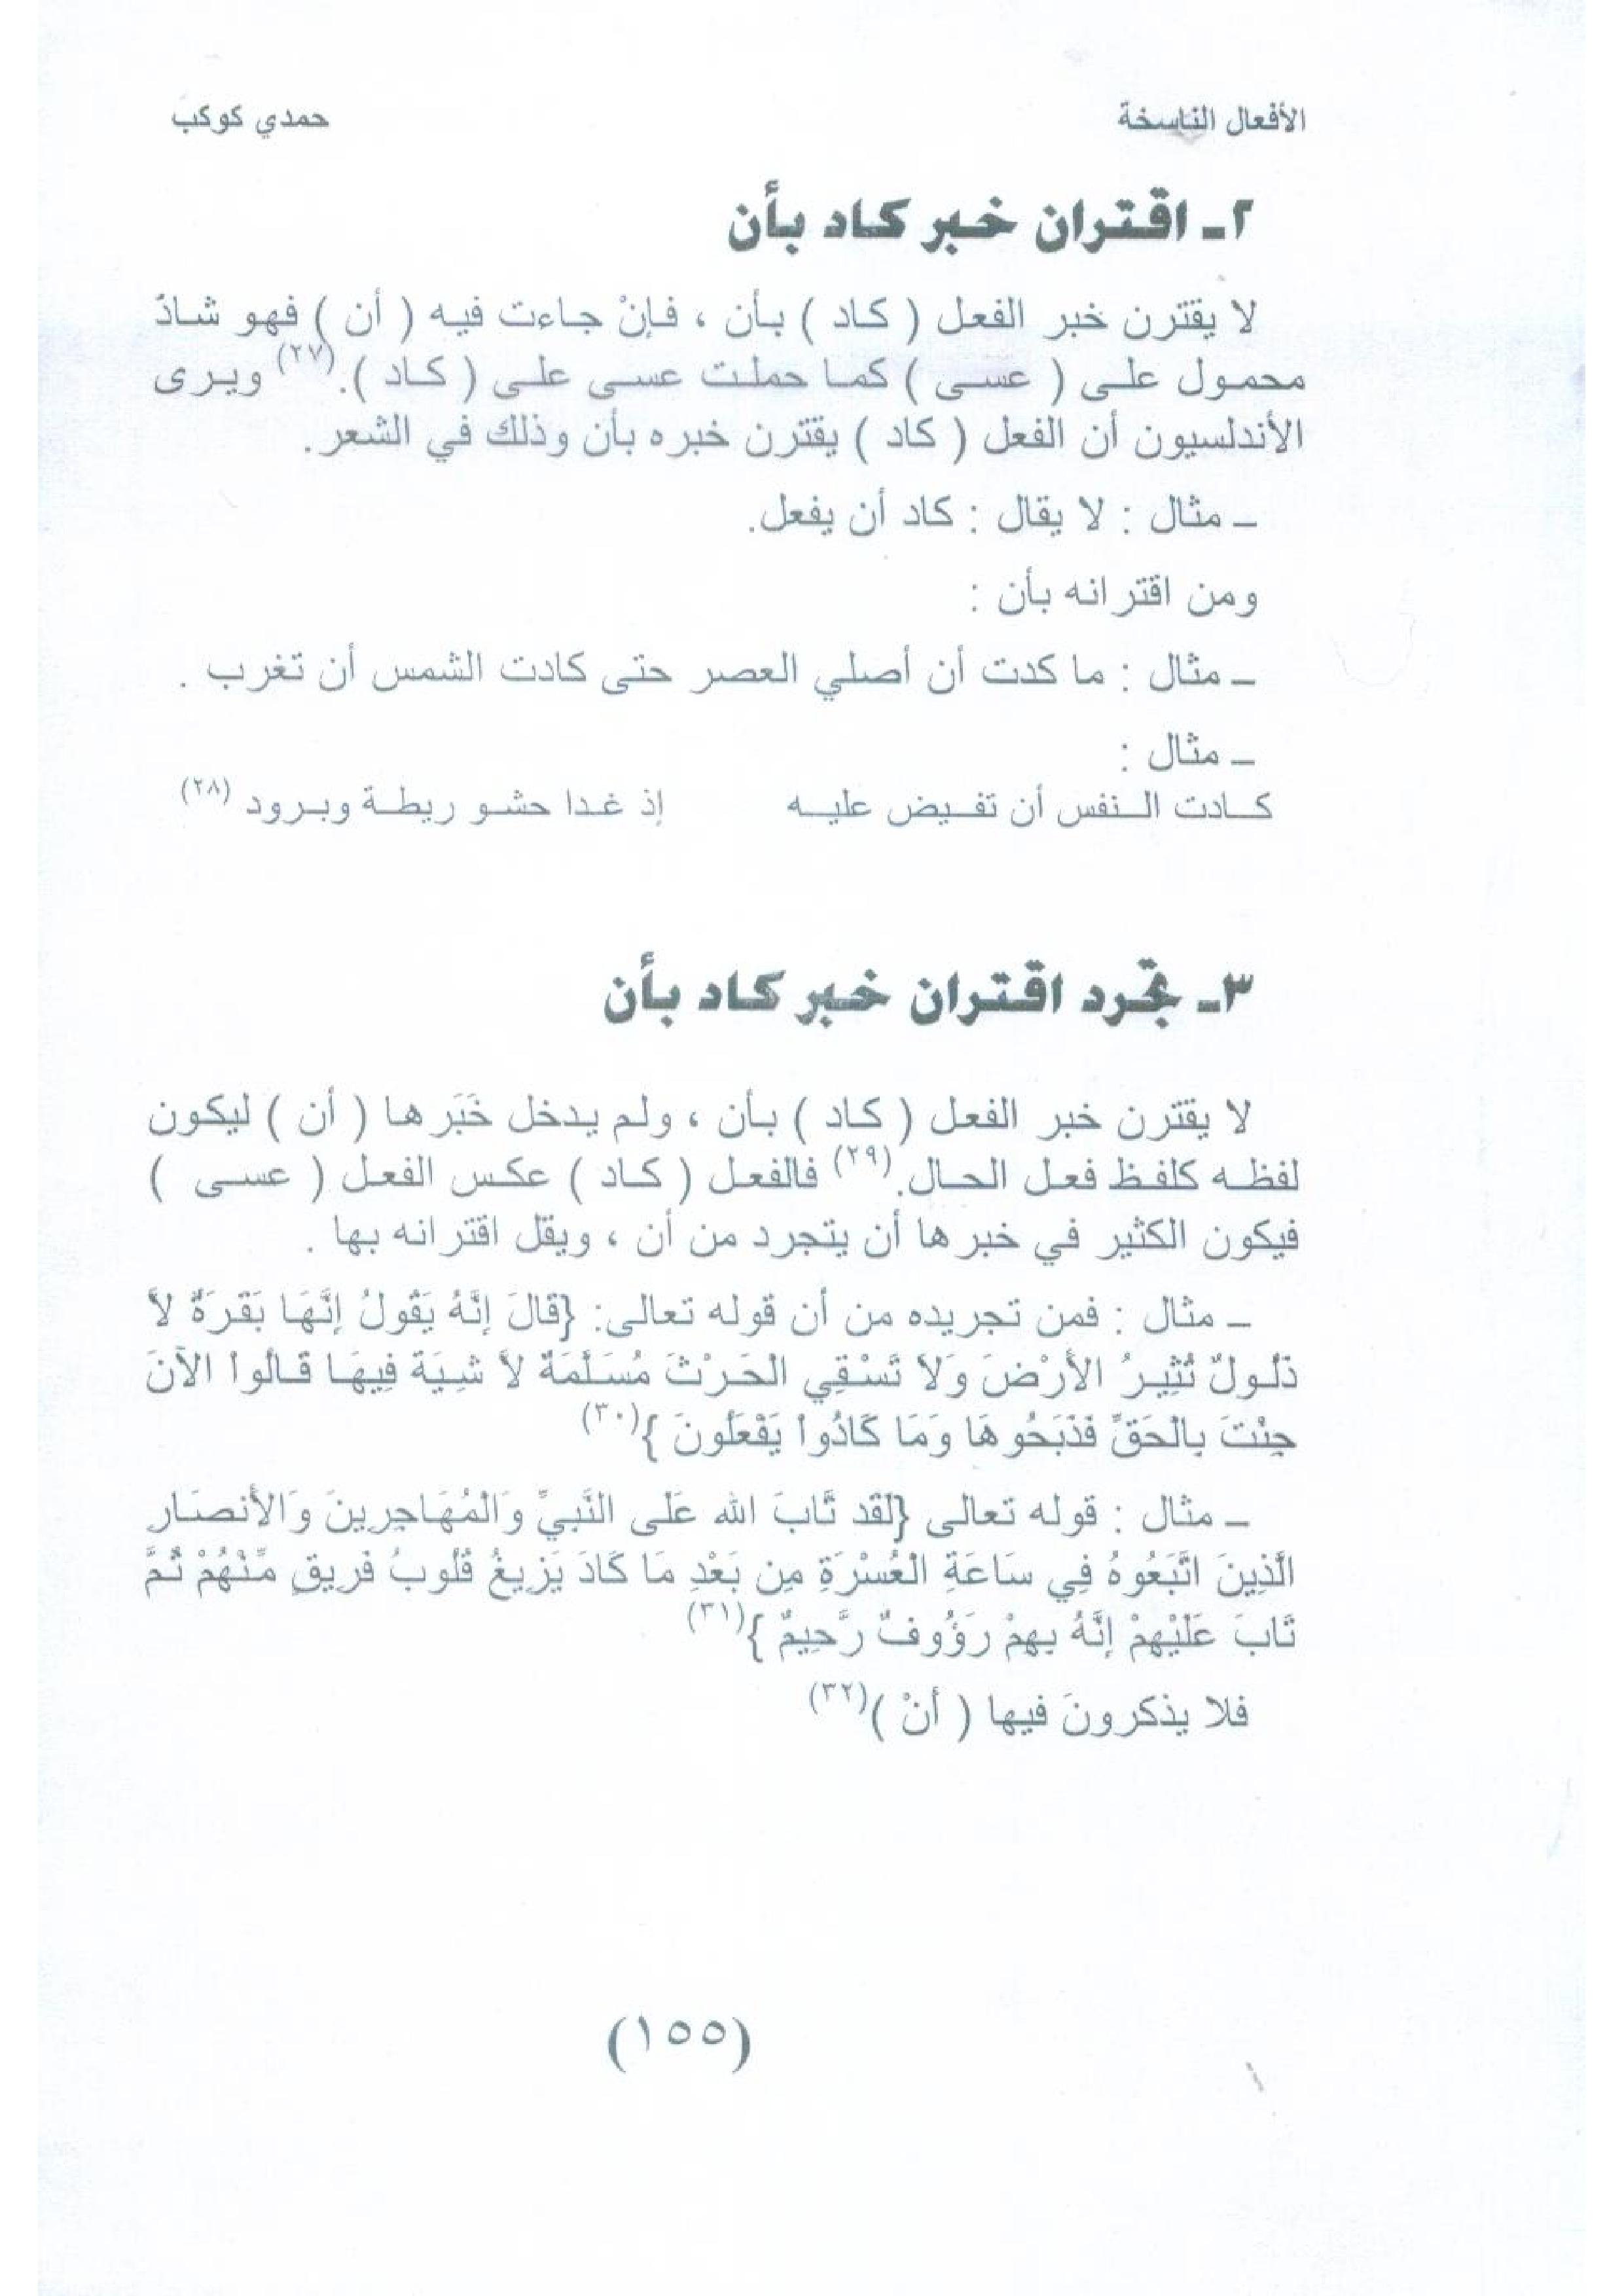 الأفعال الناسخة
حمدي كوكب
٢ـ اقتران خبر كاد بأن
لا يقترن خبر الفعل ( كاد ) بأن ، فإنْ جاءت فيه ( أن ) فهو شاذ
محمول على ( عسى ) كما حملت عسى على ( كاد ).(٢٧) ويرى
الأندلسيون أن الفعل ( كاد ) يقترن خبره بأن وذلك في الشعر .
ـ مثال : لا يقال : كاد أن يفعل.
ومن اقترانه بأن :
ـ مثال : ما كدت أن أصلي العصر حتى كادت الشمس أن تغرب .
ـ مثال :
كادت النفس أن تفيض عليه إذ غدا حشو ريطة وبرود (٢٨)
٣ـ تجّرد اقتران خبر كاد بأن
لا يقترن خبر الفعل ( كاد ) بأن ، ولم يدخل خَبَرها ( أن ) ليكون
لفظه كلفظ فعل الحال.(٢٩) فالفعل ( كاد ) عكس الفعل ( عسى )
فيكون الكثير في خبرها أن يتجرد من أن ، ويقل اقترانه بها .
ـ مثال : فمن تجريده من أن قوله تعالى: {قَالَ إِنَّهُ يَقُولُ إِنَّهَا بَقَرَةٌ لاَّ
ذَلُولٌ تُثِيرُ الأَرْضَ وَلاَ تَسْقِي الْحَرْثَ مُسَلَّمَةٌ لاَّ شِيَةَ فِيهَا قَالُواْ الآنَ
جِئْتَ بِالْحَقِّ فَذَبَحُوهَا وَمَا كَادُواْ يَفْعَلُونَ }(٣٠)
ـ مثال : قوله تعالى {لَقَد تَّابَ الله عَلَى النَّبِيِّ وَالْمُهَاجِرِينَ وَالأَنصَارِ
الَّذِينَ اتَّبَعُوهُ فِي سَاعَةِ الْعُسْرَةِ مِن بَعْدِ مَا كَادَ يَزِيغُ قُلُوبُ فَرِيقٍ مِّنْهُمْ ثُمَّ
تَابَ عَلَيْهِمْ إِنَّهُ بِهِمْ رَؤُوفٌ رَّحِيمٌ }(٣١)
فلا يذكرونَ فيها ( أنْ )(٣٢)
(١٥٥)